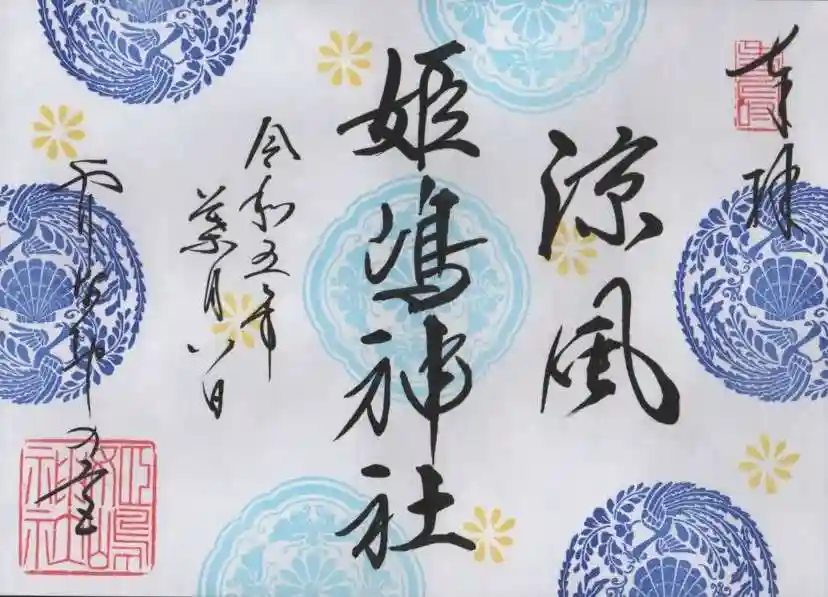 奉拝
涼風
姫嶋神社
令和五年
葉月八日
姫嶋神社